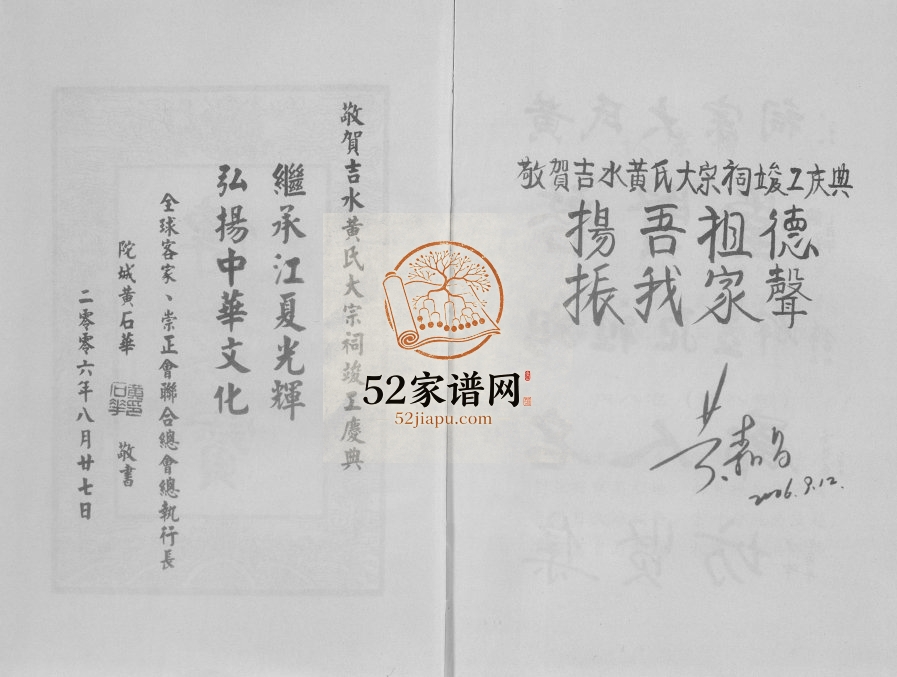 敬賀吉水黃氏大宗祠竣工庆典
揚吾祖德
振我家聲
2006.9.12.
敬賀吉水黃氏大宗祠竣工慶典
繼承江夏光輝
弘揚中華文化
全球客家、崇正會聯合總會總執行長
陀城黄石華 敬書
二零零六年八月廿七日
52家谱网
52jiapu.com